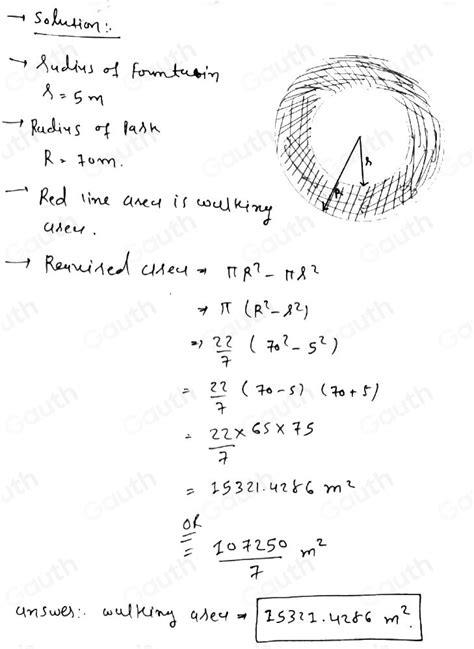 → Solution:.
→ Radius of fountain
r = 5 m
→ Radius of Park
R = 70m.
→ Red line area is walking
area.
→ Required area ⇒ πR² - πr²
⇒ π (R² - r²)
⇒ 22/7 ( 70² - 5² )
= 22/7 (70-5) (70+5)
= 22/7 × 65 × 75
= 15321.4286 m²
OR
= 107250/7 m²
answer:. walking area ⇒ 15321.4286 m².
r
R
Gauth